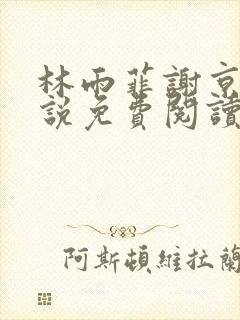 林雨菲謝京
說免費閱讀
阿斯頓維拉蘭